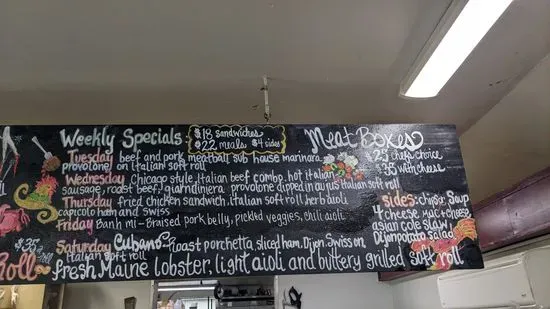 Weekly Specials
$18 sandwiches
$22 meals, $4 sides
Meat Boxes
25 chefs choice
35 with cheese
Tuesday beef and pork meatball sub house marinara
provolone on Italian soft roll
Wednesday Chicago style Italian beef combo, hot italian
sausage, roast beef, giardiniera provolone dipped in au jus Italian soft roll
Thursday fried chicken sandwich, italian soft roll herb aioli
capicolo ham and swiss
Friday Banh mi - Braised pork belly, pickled veggies, chili aioli
Saturday Cubano Roast porchetta, sliced ham, Dijon, Swiss on
Italian soft roll
sides: chips or Soup
4 cheese mac + cheese
asian cole slaw
Dijon potato salad
$35
Roll fresh Maine lobster, light aioli and buttery grilled soft roll